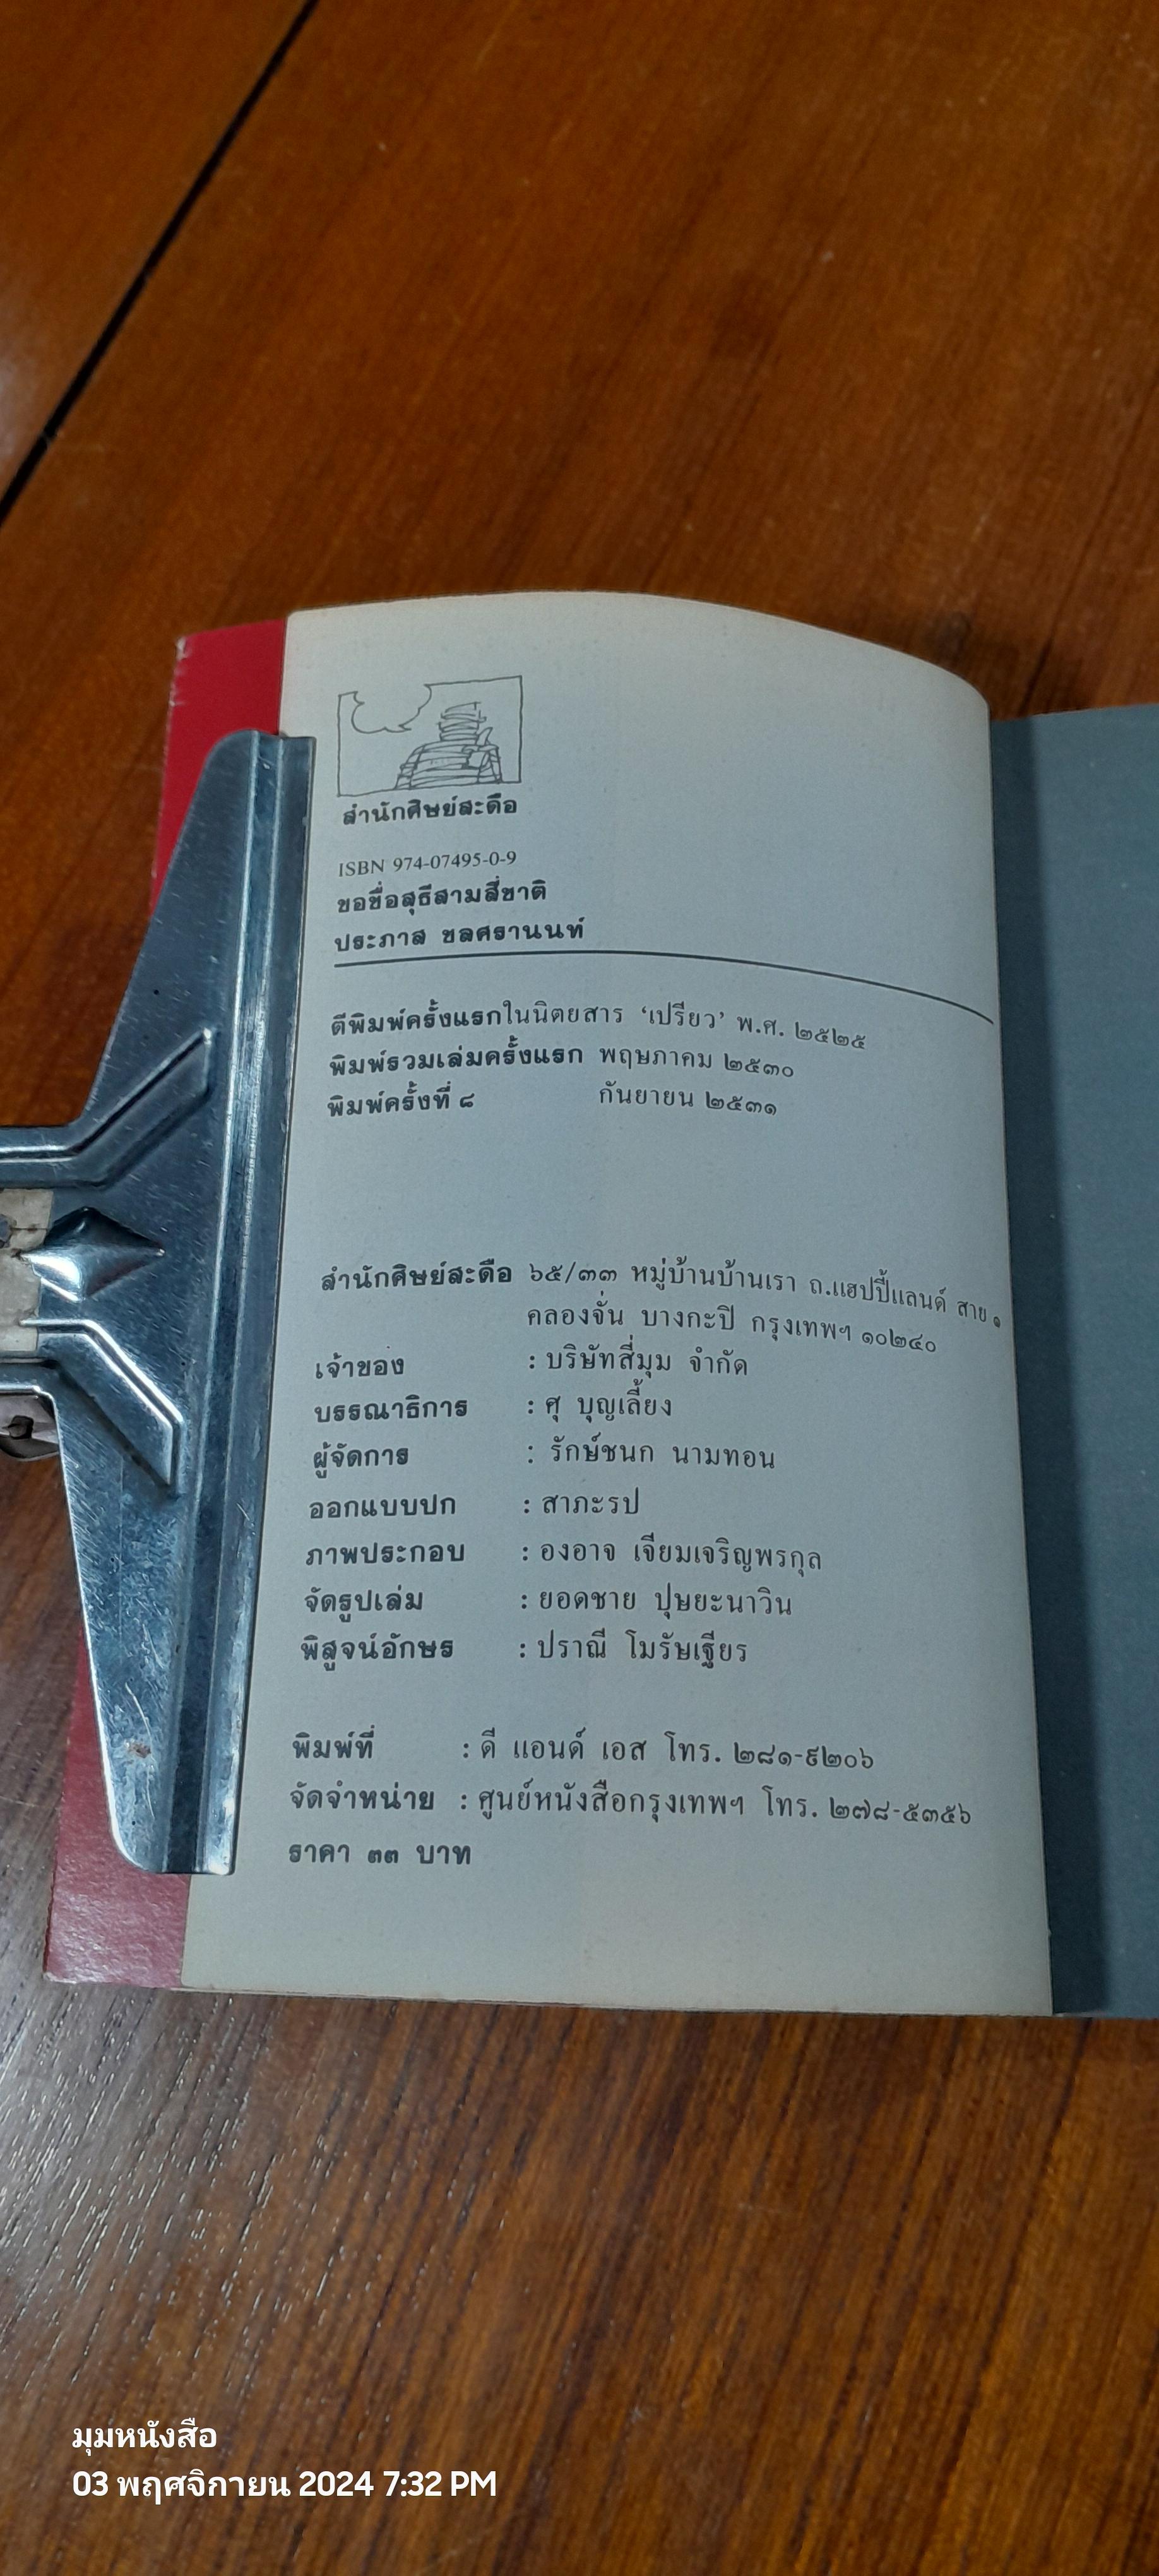 สำนักศิษย์สะดือ
ISBN 974-07495-0-9
ขอชื่อสุธีสามสี่ชาติ
ประภาส ชลศรานนท์
ตีพิมพ์ครั้งแรกในนิตยสาร ‘เปรียว’ พ.ศ. ๒๕๒๕
พิมพ์รวมเล่มครั้งแรก พฤษภาคม ๒๕๓๐
พิมพ์ครั้งที่ ๘ กันยายน ๒๕๓๑
สำนักศิษย์สะดือ ๖๕/๓๓ หมู่บ้านบ้านเรา ถ.แฮปปี้แลนด์ สาย ๑
คลองจั่น บางกะปิ กรุงเทพฯ ๑๐๒๔๐
เจ้าของ : บริษัทสี่มุม จำกัด
บรรณาธิการ : ศุ บุญเลี้ยง
ผู้จัดการ : รักษ์ชนก นามทอน
ออกแบบปก : สาภะรป
ภาพประกอบ : องอาจ เจียมเจริญพรกุล
จัดรูปเล่ม : ยอดชาย ปุษยะนาวิน
พิสูจน์อักษร : ปราณี โมรัษเฐียร
พิมพ์ที่ : ดี แอนด์ เอส โทร. ๒๘๑-๙๒๐๖
จัดจำหน่าย : ศูนย์หนังสือกรุงเทพฯ โทร. ๒๗๘-๕๓๕๖
ราคา ๓๓ บาท
มุมหนังสือ
03 พฤศจิกายน 2024 7:32 PM